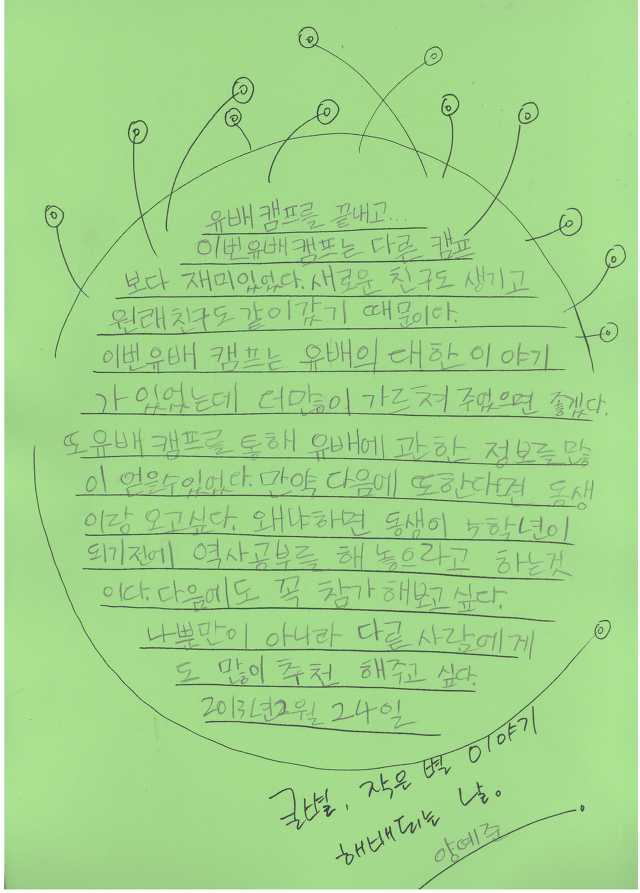 유배캠프를 끝내고...
이번유배캠프는 다른 캠프
보다 재미있었다. 새로운 친구도 생기고
원래친구도 같이갔기 때문이다.
이번유배 캠프는 유배의 대한 이야기
가 있었는데 더많이 가르쳐 주었으면 좋겠다.
또유배캠프를 통해 유배에 관한 정보를 많
이 얻을수있었다. 만약 다음에 또한다면 동생
이랑 오고싶다. 왜냐하면 동생이 5학년이
되기전에 역사공부를 해 놓으라고 하는것
이다. 다음에도 꼭 참가해보고싶다.
나뿐만이 아니라 다른 사람에게
도 많이 추천 해주고 싶다.
2013년2월 24일
글별, 작은 별 이야기
해배되는 날.
양예준